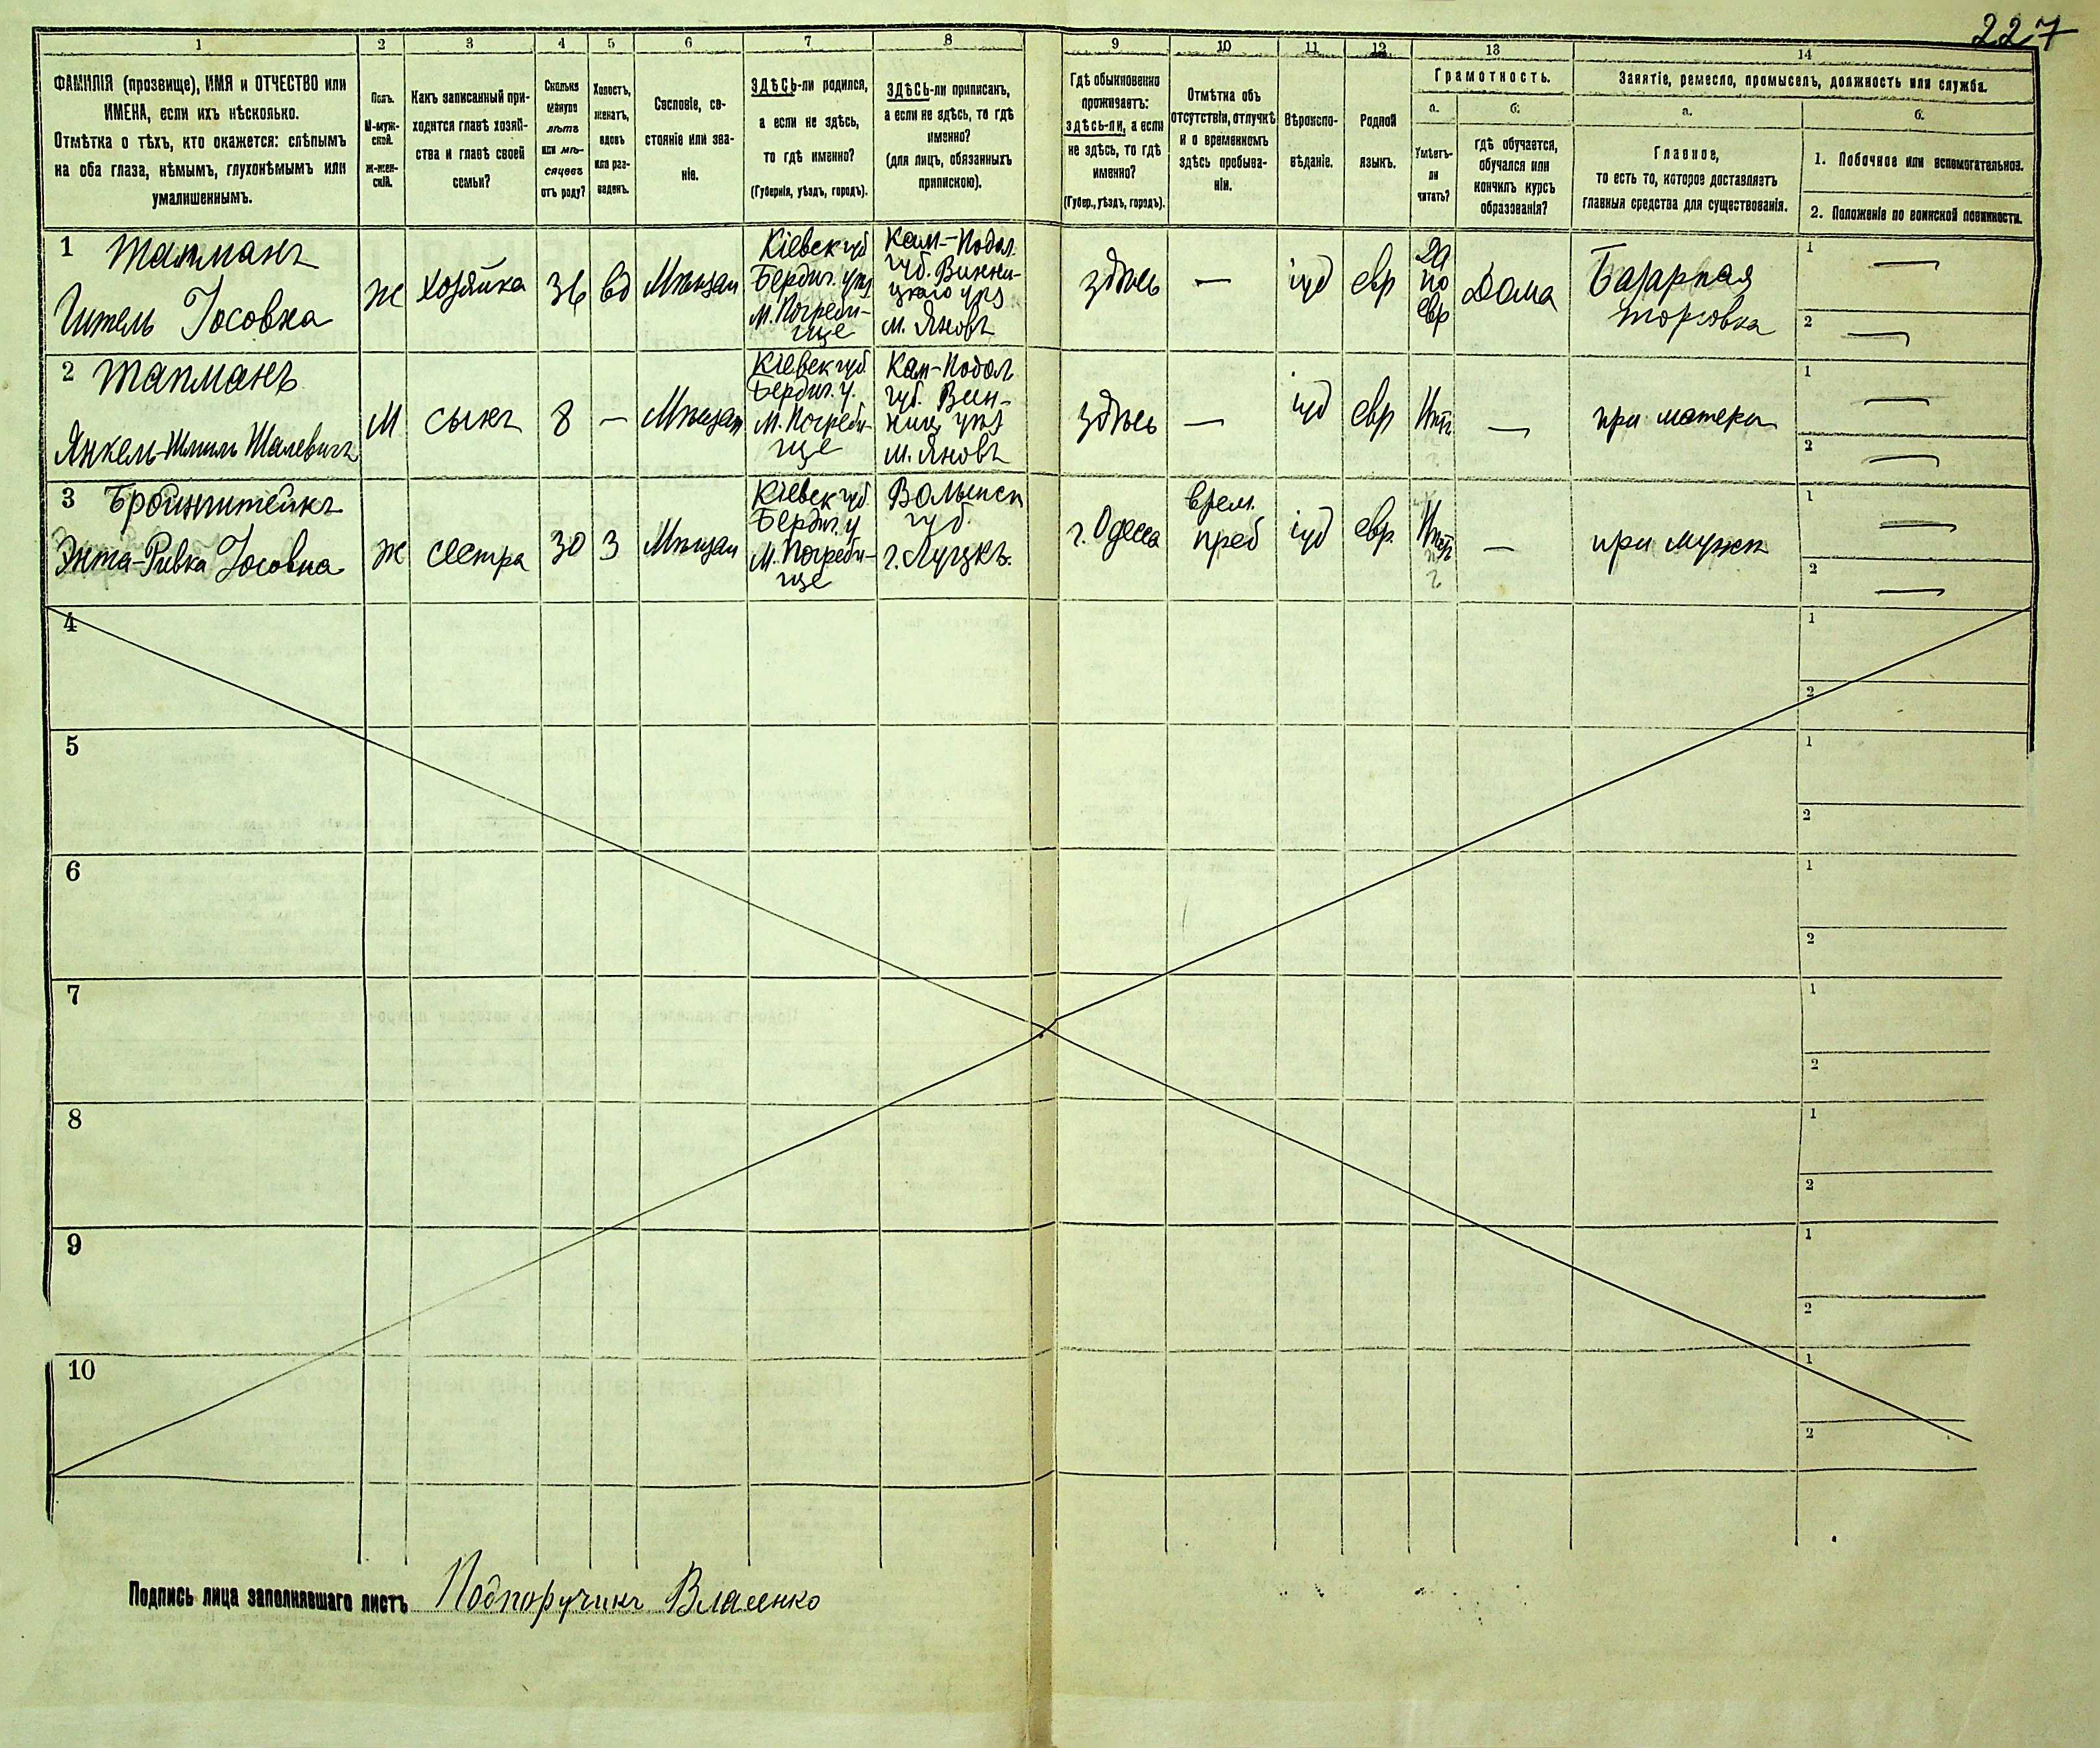 227
1 2 3 4 5 6 7 8 9 10 11 12 13 14
ФАМИЛІЯ (прозвище), ИМЯ и ОТЧЕСТВО или
ИМЕНА, если ихъ нѣсколько.
Отмѣтка о тѣхъ, кто окажется: слѣпымъ
на оба глаза, нѣмымъ, глухонѣмымъ или
умалишеннымъ.
Полъ.
М-муж-
ской.
ж-жен-
скій.
Какъ записанный при-
ходится главѣ хозяй-
ства и главѣ своей
семьи?
Сколько
минуло
лѣтъ
или мѣ-
сяцевъ
отъ роду?
Холостъ,
женатъ,
вдовъ
или раз-
веденъ.
Сословіе, со-
стояніе или зва-
ніе.
ЗДѢСЬ-ли родился,
а если не здѣсь,
то гдѣ именно?
(Губернія, уѣздъ, городъ).
ЗДѢСЬ-ли приписанъ,
а если не здѣсь, то гдѣ
именно?
(для лицъ, обязанныхъ
припискою).
Гдѣ обыкновенно
проживаетъ:
здѣсь-ли, а если
не здѣсь, то гдѣ
именно?
(Губер., уѣздъ, городъ).
Отмѣтка объ
отсутствіи, отлучкѣ
и о временномъ
здѣсь пребыва-
ніи.
Вѣроиспо-
вѣданіе.
Родной
языкъ.
Грамотность.
а.
Умѣетъ-
ли
читать?
б.
гдѣ обучается,
обучался или
кончилъ курсъ
образованія?
Занятіе, ремесло, промыселъ, должность или служба.
а.
Главное,
то есть то, которое доставляетъ
главныя средства для существованія.
б.
1. Побочное или вспомогательное.
2. Положеніе по воинской повинности.
1 Тапманъ
Гитель Іосовна
ж
хозяйка
36
вд
Мѣщан
Кіевск губ
Бердич. уѣз
м. Погреби-
ще
Кам-Подол.
губ. Винни-
цкаго уѣз
м. Яновъ
здѣсь
—
іуд
евр
Да
по
евр
Дома
Базарная
торговка
1 —
2 —
2 Тапманъ
Янкель-Шмиль Шалевичъ
М
сынъ
8
—
Мѣщан
Кіевск губ.
Бердич. у.
м. Погреби-
ще
Кам-Подол
губ. Вин-
ниц уѣз
м. Яновъ
здѣсь
—
іуд
евр
Нѣт
—
при матери
1 —
2 —
3 Бройнштейнъ
Энта-Ривка Іосовна
Ж
сестра
30
З
Мѣщан
Кіевск губ.
Бердич. у
м. Погреби-
ще
Волынск
губ.
г. Луцкъ.
г. Одесса
врем.
преб
іуд
евр.
—
при мужѣ
1 —
2 —
4 1
2
5 1
2
6 1
2
7 1
2
8 1
2
9 1
2
10 1
2
Подпись лица заполнявшаго листъ Подпоручикъ Власенко